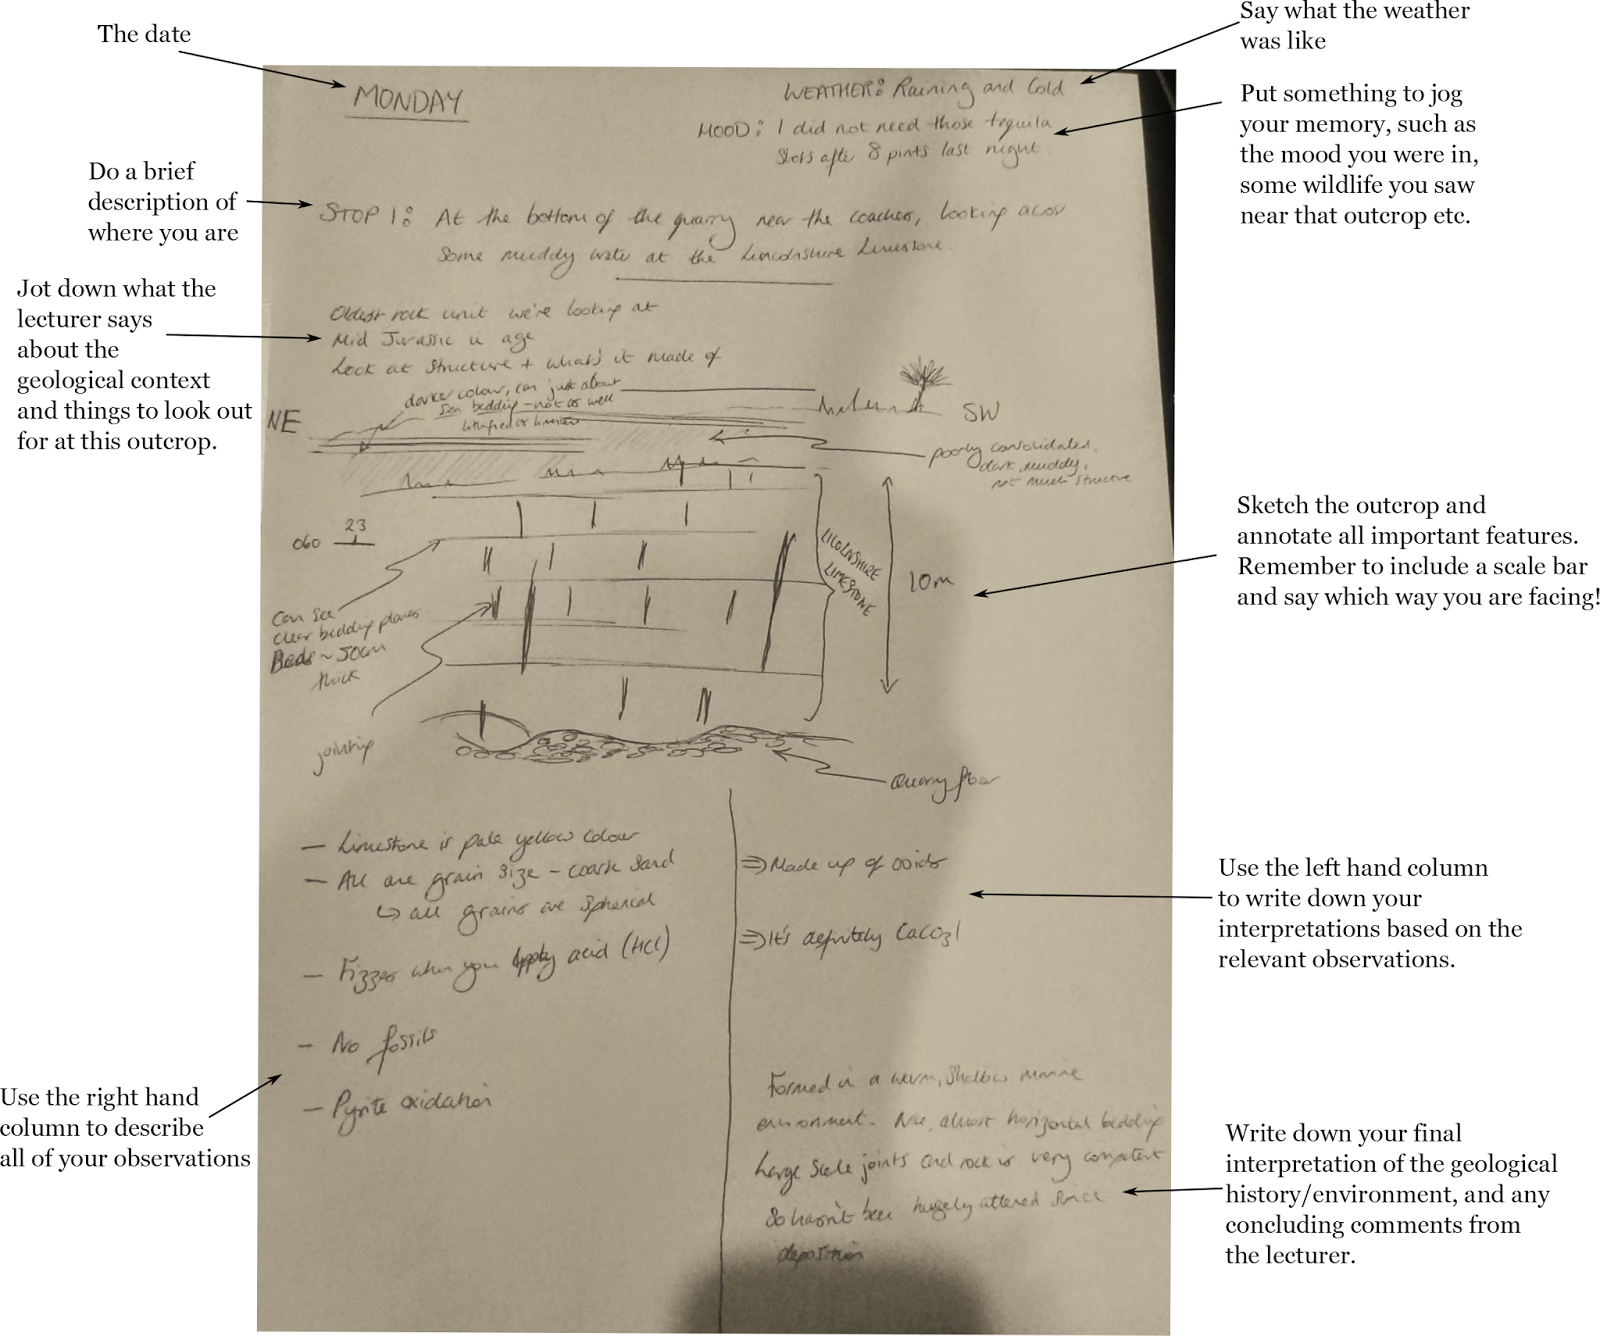 The date
Say what the weather
was like
MONDAY
WEATHER: Raining and Cold
MOOD: I did not need those tequila
shots after 8 pints last night.
Put something to jog
your memory, such as
the mood you were in,
some wildlife you saw
near that outcrop etc.
Do a brief
description of
where you are
STOP 1: At the bottom of the quarry near the coaches, looking acoss
some muddy water at the Lincolnshire Limestone.
Jot down what the
lecturer says
about the
geological context
and things to look out
for at this outcrop.
Oldest rock unit we're looking at
Mid Jurassic in age
Look at structure + what's it made of
darker colour, can just about
see bedding - not as well
lithified as limestone
NE
SW
poorly consolidated,
dark, muddy,
not much structure
060 23
Can see
clear bedding planes
Beds ~ 50cm
thick
jointing
LILOLNSHIRE
LIMESTONE
10m
Quarry floor
Sketch the outcrop and
annotate all important features.
Remember to include a scale bar
and say which way you are facing!
- Limestone is pale yellow colour
- All one grain size - coarse sand
↳ all grains are spherical
- Fizzes when you apply acid (HCl)
- No fossils
- Pyrite oxidation
⇒ Made up of ooids
⇒ It's definitely CaCO3!
Use the left hand column
to write down your
interpretations based on the
relevant observations.
Use the right hand
column to describe
all of your observations
Formed in a warm, shallow marine
environment. Nice, almost horizontal bedding
Large scale joints and rock is very competent
so hasn't been hugely altered since
deposition
Write down your final
interpretation of the geological
history/environment, and any
concluding comments from
the lecturer.